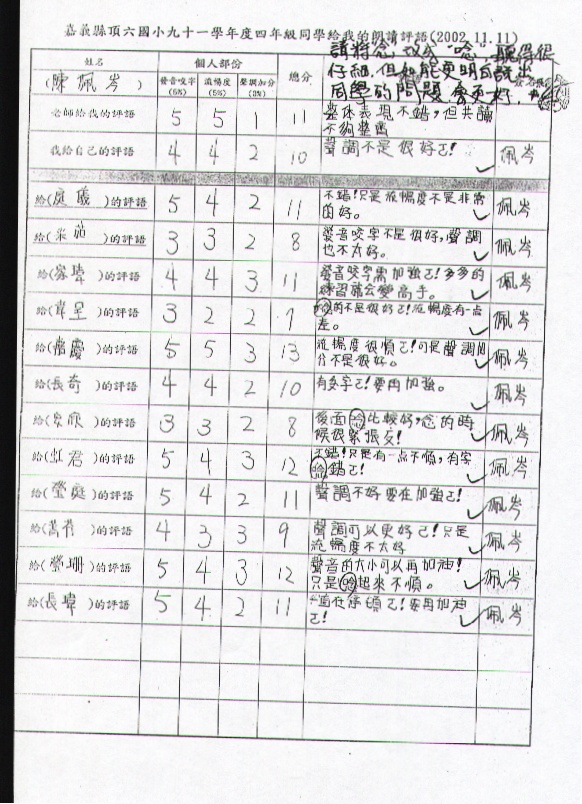 嘉義縣頂六國小九十一學年度四年級同學給我的朗讀評語(2002.11.11)
請將念,改成"唸",聽得很
仔細,但如能更明白說出
同學的問題,會更好.
姓名 個人部份 總分
(陳珮岑) 發音咬字(5%) 流暢度(5%) 聲調加分(3%)
老師給我的評語 5 5 1 11 整体表現不錯,但共讀
不夠整齊
我給自己的評語 4 4 2 10 聲調不是很好ㄛ! 佩岑
給(庭儀)的評語 5 4 2 11 不錯!只是流暢度不是非常
的好。 佩岑
給( )的評語 3 3 2 8 發音咬字不是很好,聲調
也不太好。 佩岑
給( 瑋)的評語 4 4 3 11 發音咬字需加強ㄛ!多多的
練習就會變高手。 佩岑
給( )的評語 3 2 2 7 的不是很好ㄛ!流暢度有一点
差。 佩岑
給( 慶)的評語 5 5 3 13 流暢度很順ㄛ!可是聲調加
分不是很好。 佩岑
給(長奇)的評語 4 4 2 10 有多字ㄛ!要再加強。 佩岑
給(奕欣)的評語 3 3 2 8 後面唸比較好,念的時
候很緊張交! 佩岑
給(虹君)的評語 5 4 3 12 不錯!只是有一点不順,有字
唸錯ㄛ! 佩岑
給(瑩庭)的評語 5 4 2 11 聲調不好要在加強ㄛ! 佩岑
給( )的評語 4 3 3 9 聲調可以更好ㄛ!只是
流暢度不太好 佩岑
給( 珊)的評語 5 4 3 12 聲音的大小可以再加油!
只是唸起來不順。 佩岑
給(長瑋)的評語 5 4 2 11 一直在停頓ㄛ!要再加油
ㄛ! 佩岑